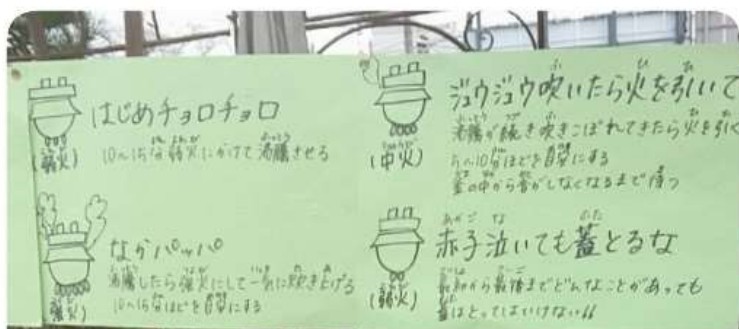 はじめチョロチョロ
(弱火)
10〜15分弱火にかけて沸騰させる
なかパッパ
沸騰したら強火にして一気に炊き上げる
(強火)
10〜15分ほどを目安にする
ジュウジュウ吹いたら火を引いて
(中火)
沸騰が続き吹きこぼれてきたら火を引く
5〜10分ほどを目安にする
釜の中から音がしなくなるまで待つ
赤子泣いても蓋とるな
(弱火)
最初から最後までどんなことがあっても
蓋はとってはいけない!!